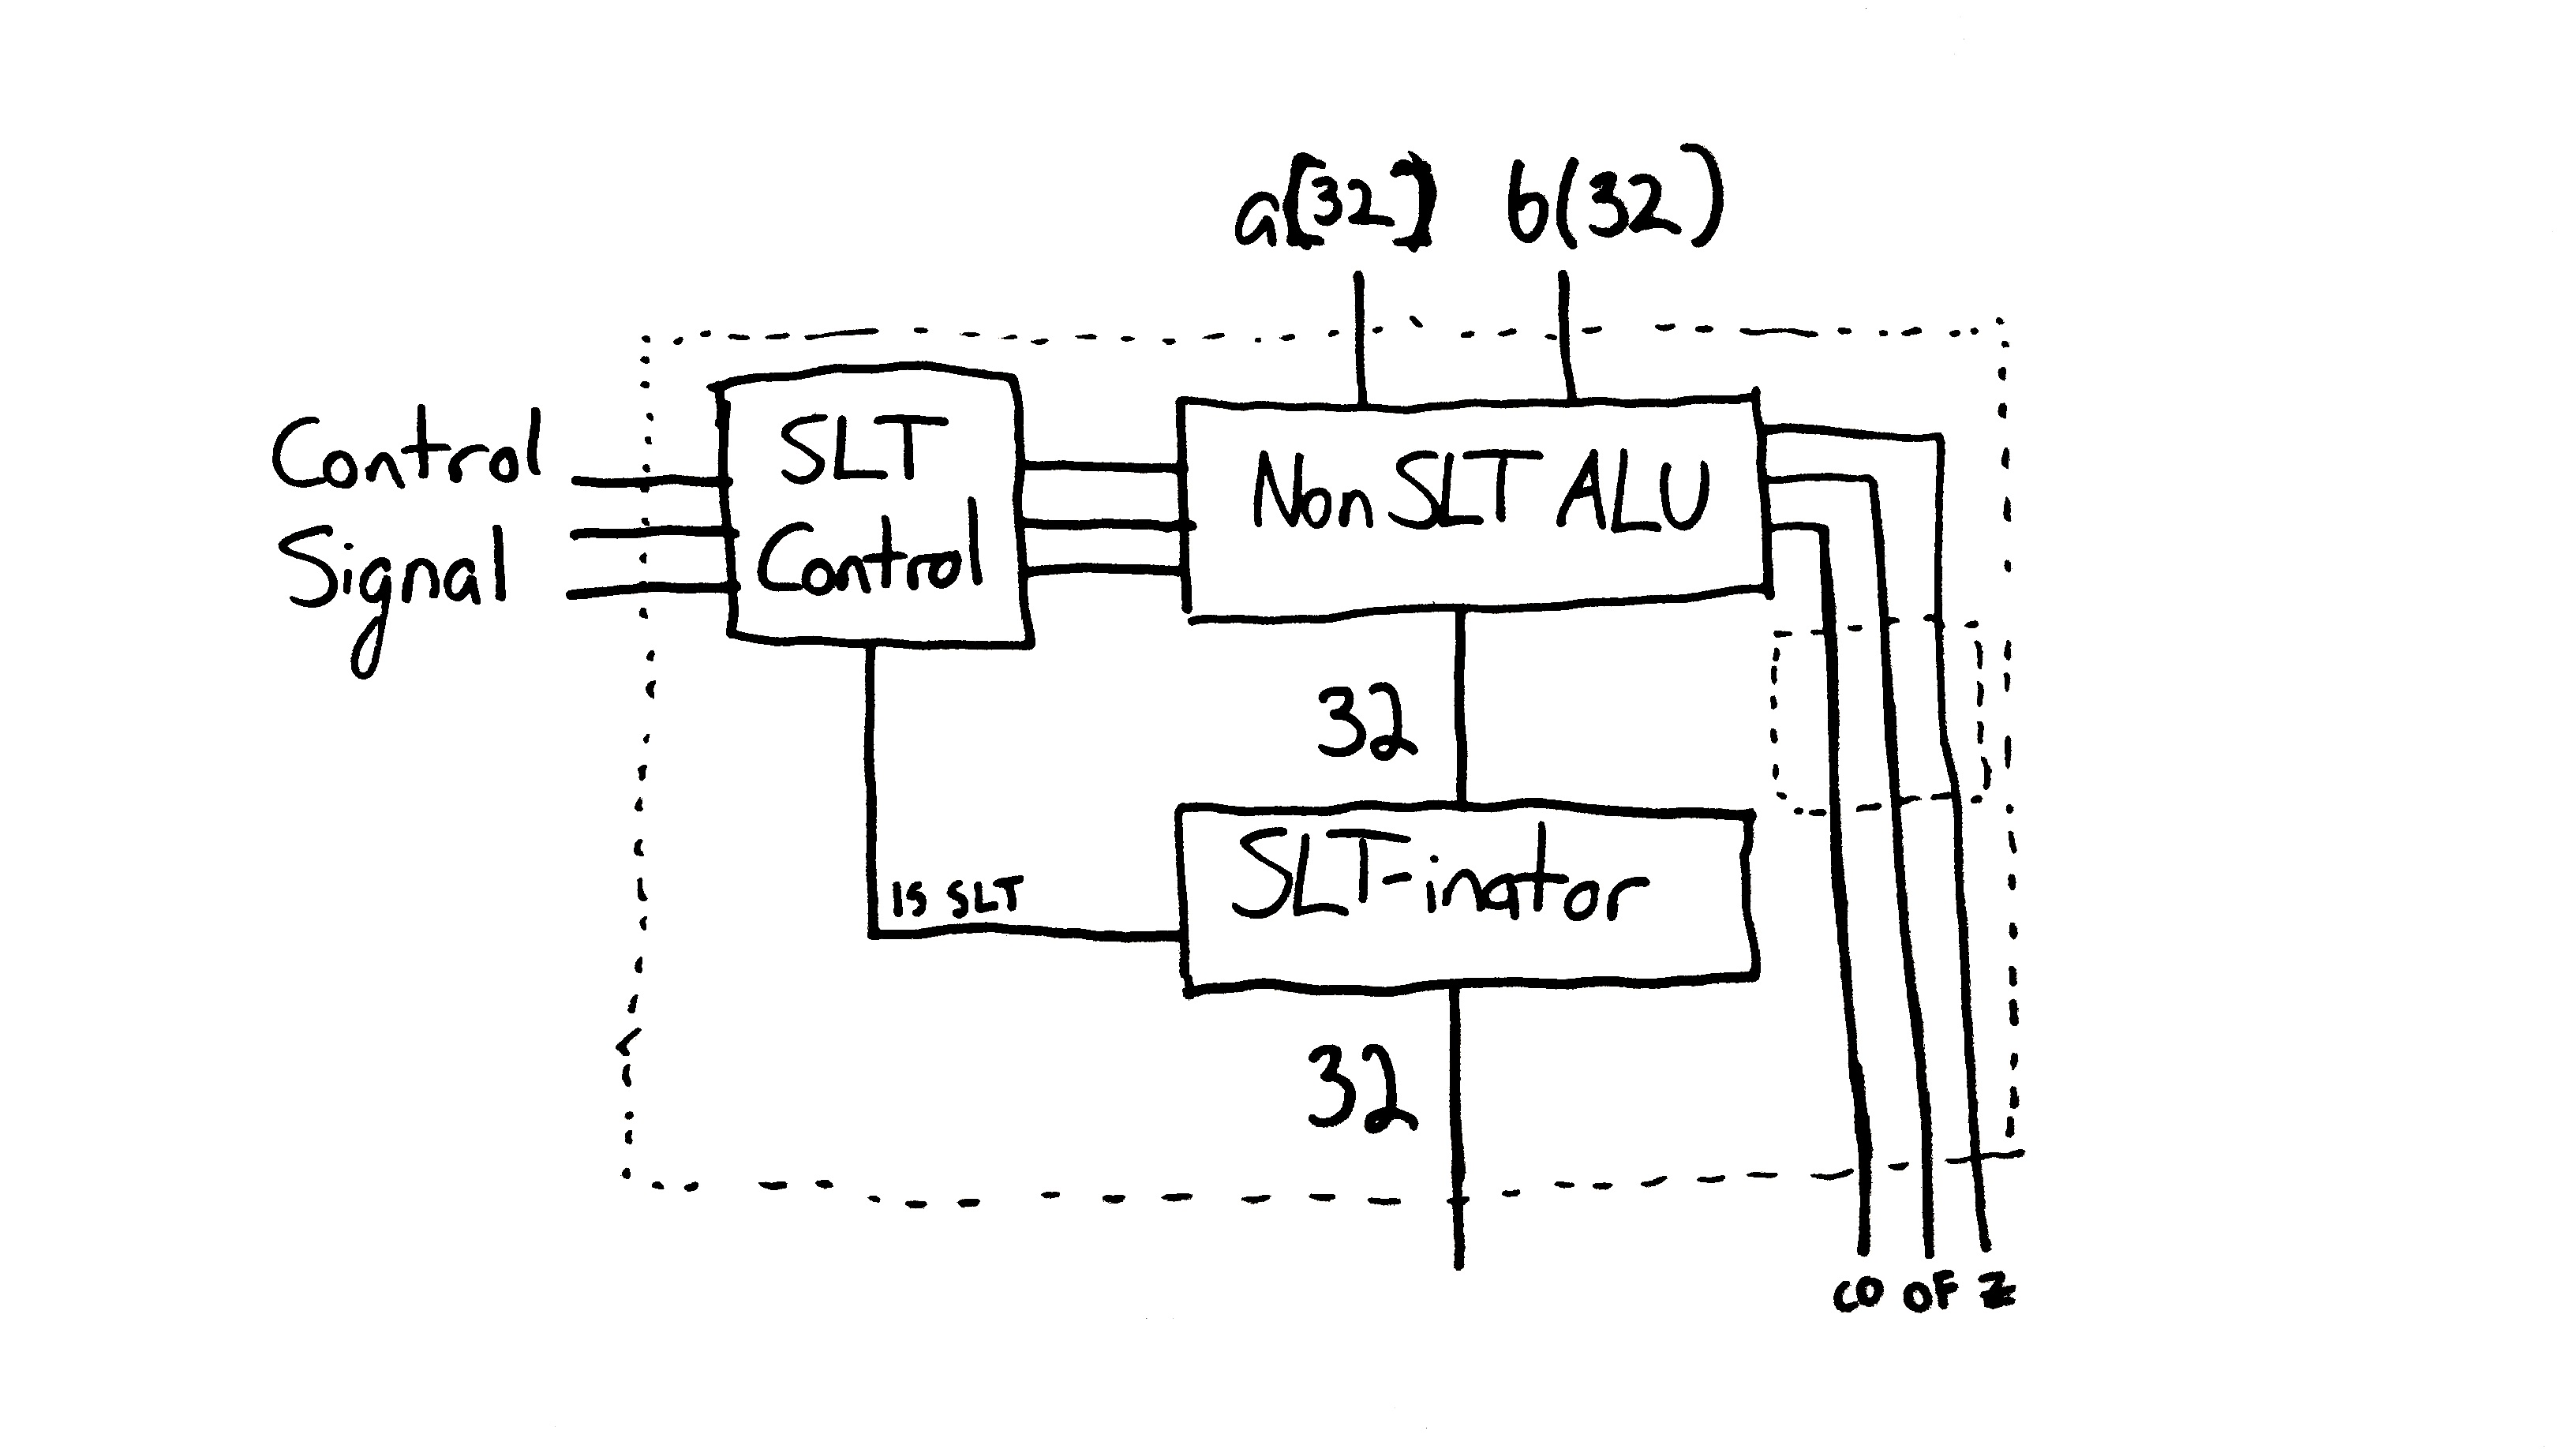 a[32] b(32)
Control
Signal
SLT
Control
Non SLT ALU
32
IS SLT
SLT-inator
32
CO OF Z